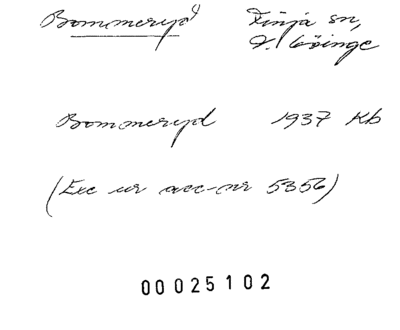 Bommeryd Finja sn,
V. Göinge
Bommeryd 1937 Kb
(Exc ur acc-nr 5356)
00025102